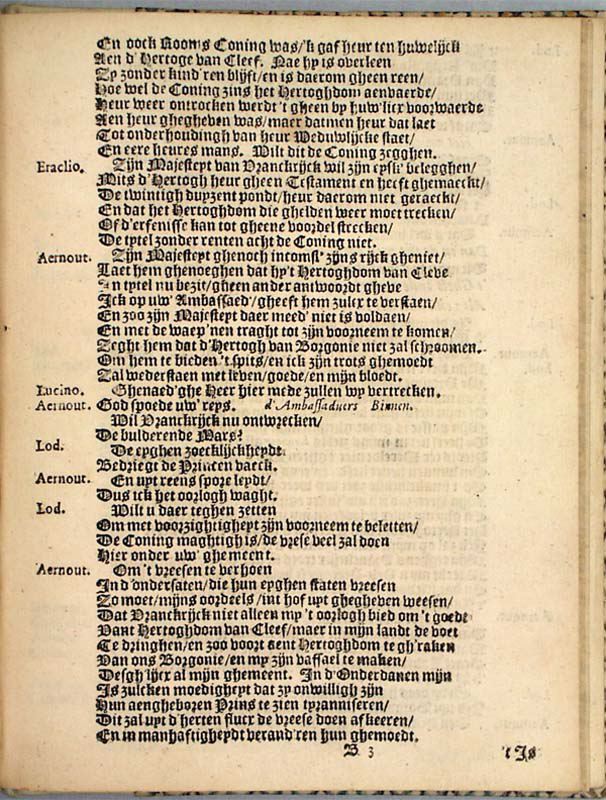 En oock Rooms Coning was/'k gaf heur ten huwelijck
Aen d'Hertoge van Cleef. Nae hy is overleen
Zy zonder kind'ren blijft/en is daerom gheen reen/
Hoe wel de Coning zins het Hertoghdom aenvaerde/
Heur weer ontrocken werdt 't gheen by huw'licx voorwaerde
Aen heur ghegheven was/maer datmen heur dat laet
Tot onderhoudingh van heur Weduwlijcke staet/
En eere heures mans. Wilt dit de Coning zegghen.
Eraclio. Zijn Majesteyt van Vranckrijck wil zijn eysk' belegghen/
Mits d'Hertogh heur gheen Testament en heeft ghemaeckt/
De twintigh duyzent pondt/heur daerom niet geraeckt/
En dat het Hertoghdom die ghelden weer moet trecken/
Of d'erfenisse kan tot gheene voordel strecken/
De tytel zonder renten acht de Coning niet.
Aernout. Zijn Majesteyt ghenoch incomst' zijns rijck gheniet/
Laet hem ghenoeghen dat hy't Hertoghdom van Cleve
In tytel nu bezit/gheen ander antwoordt gheve
Ick op uw' Ambassaed'/gheeft hem zulcx te verstaen/
En zoo zijn Majesteyt daer meed' niet is voldaen/
En met de waep'nen traght tot zijn voorneem te komen/
Zeght hem dat d'Hertogh van Borgonie niet zal schroomen.
Om hem te bieden 't spits/en ick zijn trots ghemoedt
Zal wederstaen met leven/goede/en mijn bloedt.
Lucino. Ghenaed'ghe Heer hier mede zullen wy vertrecken.
Aernout. God spoede uw' reys. d'Ambassaduers Binnen.
Wil Vranckrijck nu ontwrecken/
De bulderende Mars?
Lod. De eyghen zoecklijckheydt
Bedriegt de Princen vaeck.
Aernout. En uyt reens spore leydt/
Dus ick het oorlogh waght.
Lod. Wilt u daer teghen zetten
Om met voorzightigheyt zijn voorneem te beletten/
De Coning maghtigh is/de vrese veel zal doen
Hier onder uw' ghemeent.
Aernout. Om 't vreesen te verhoen
In d'ondersaten/die hun eyghen staten vreesen
Zo moet/mijns oordeels/int hof uyt ghegheven weesen/
Dat Vranckrijck niet alleen my 't oorlogh bied om 't goedt
Vant Hertoghdom van Cleef/maer in mijn landt de voet
Te dringhen/en zoo voort sent Hertoghdom te gh'raken
Van ons Borgonie/en my zijn vassael te maken/
Desgh'lijcx al mijn ghemeent. In d'Onderdanen mijn
Is zulcken moedigheyt dat zy onwilligh zijn
Hun aengheboren Prins te zien tyranniseren/
Dit zal uyt d'herten flucx de vreese doen afkeeren/
En in manhaftigheydt verand'ren hun ghemoedt.
B 3 't Is